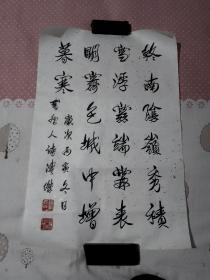 終南陰嶺秀積
雪浮雲端林表
明霽色城中增
暮寒
歲次丙寅冬日
唐人詩溥傑